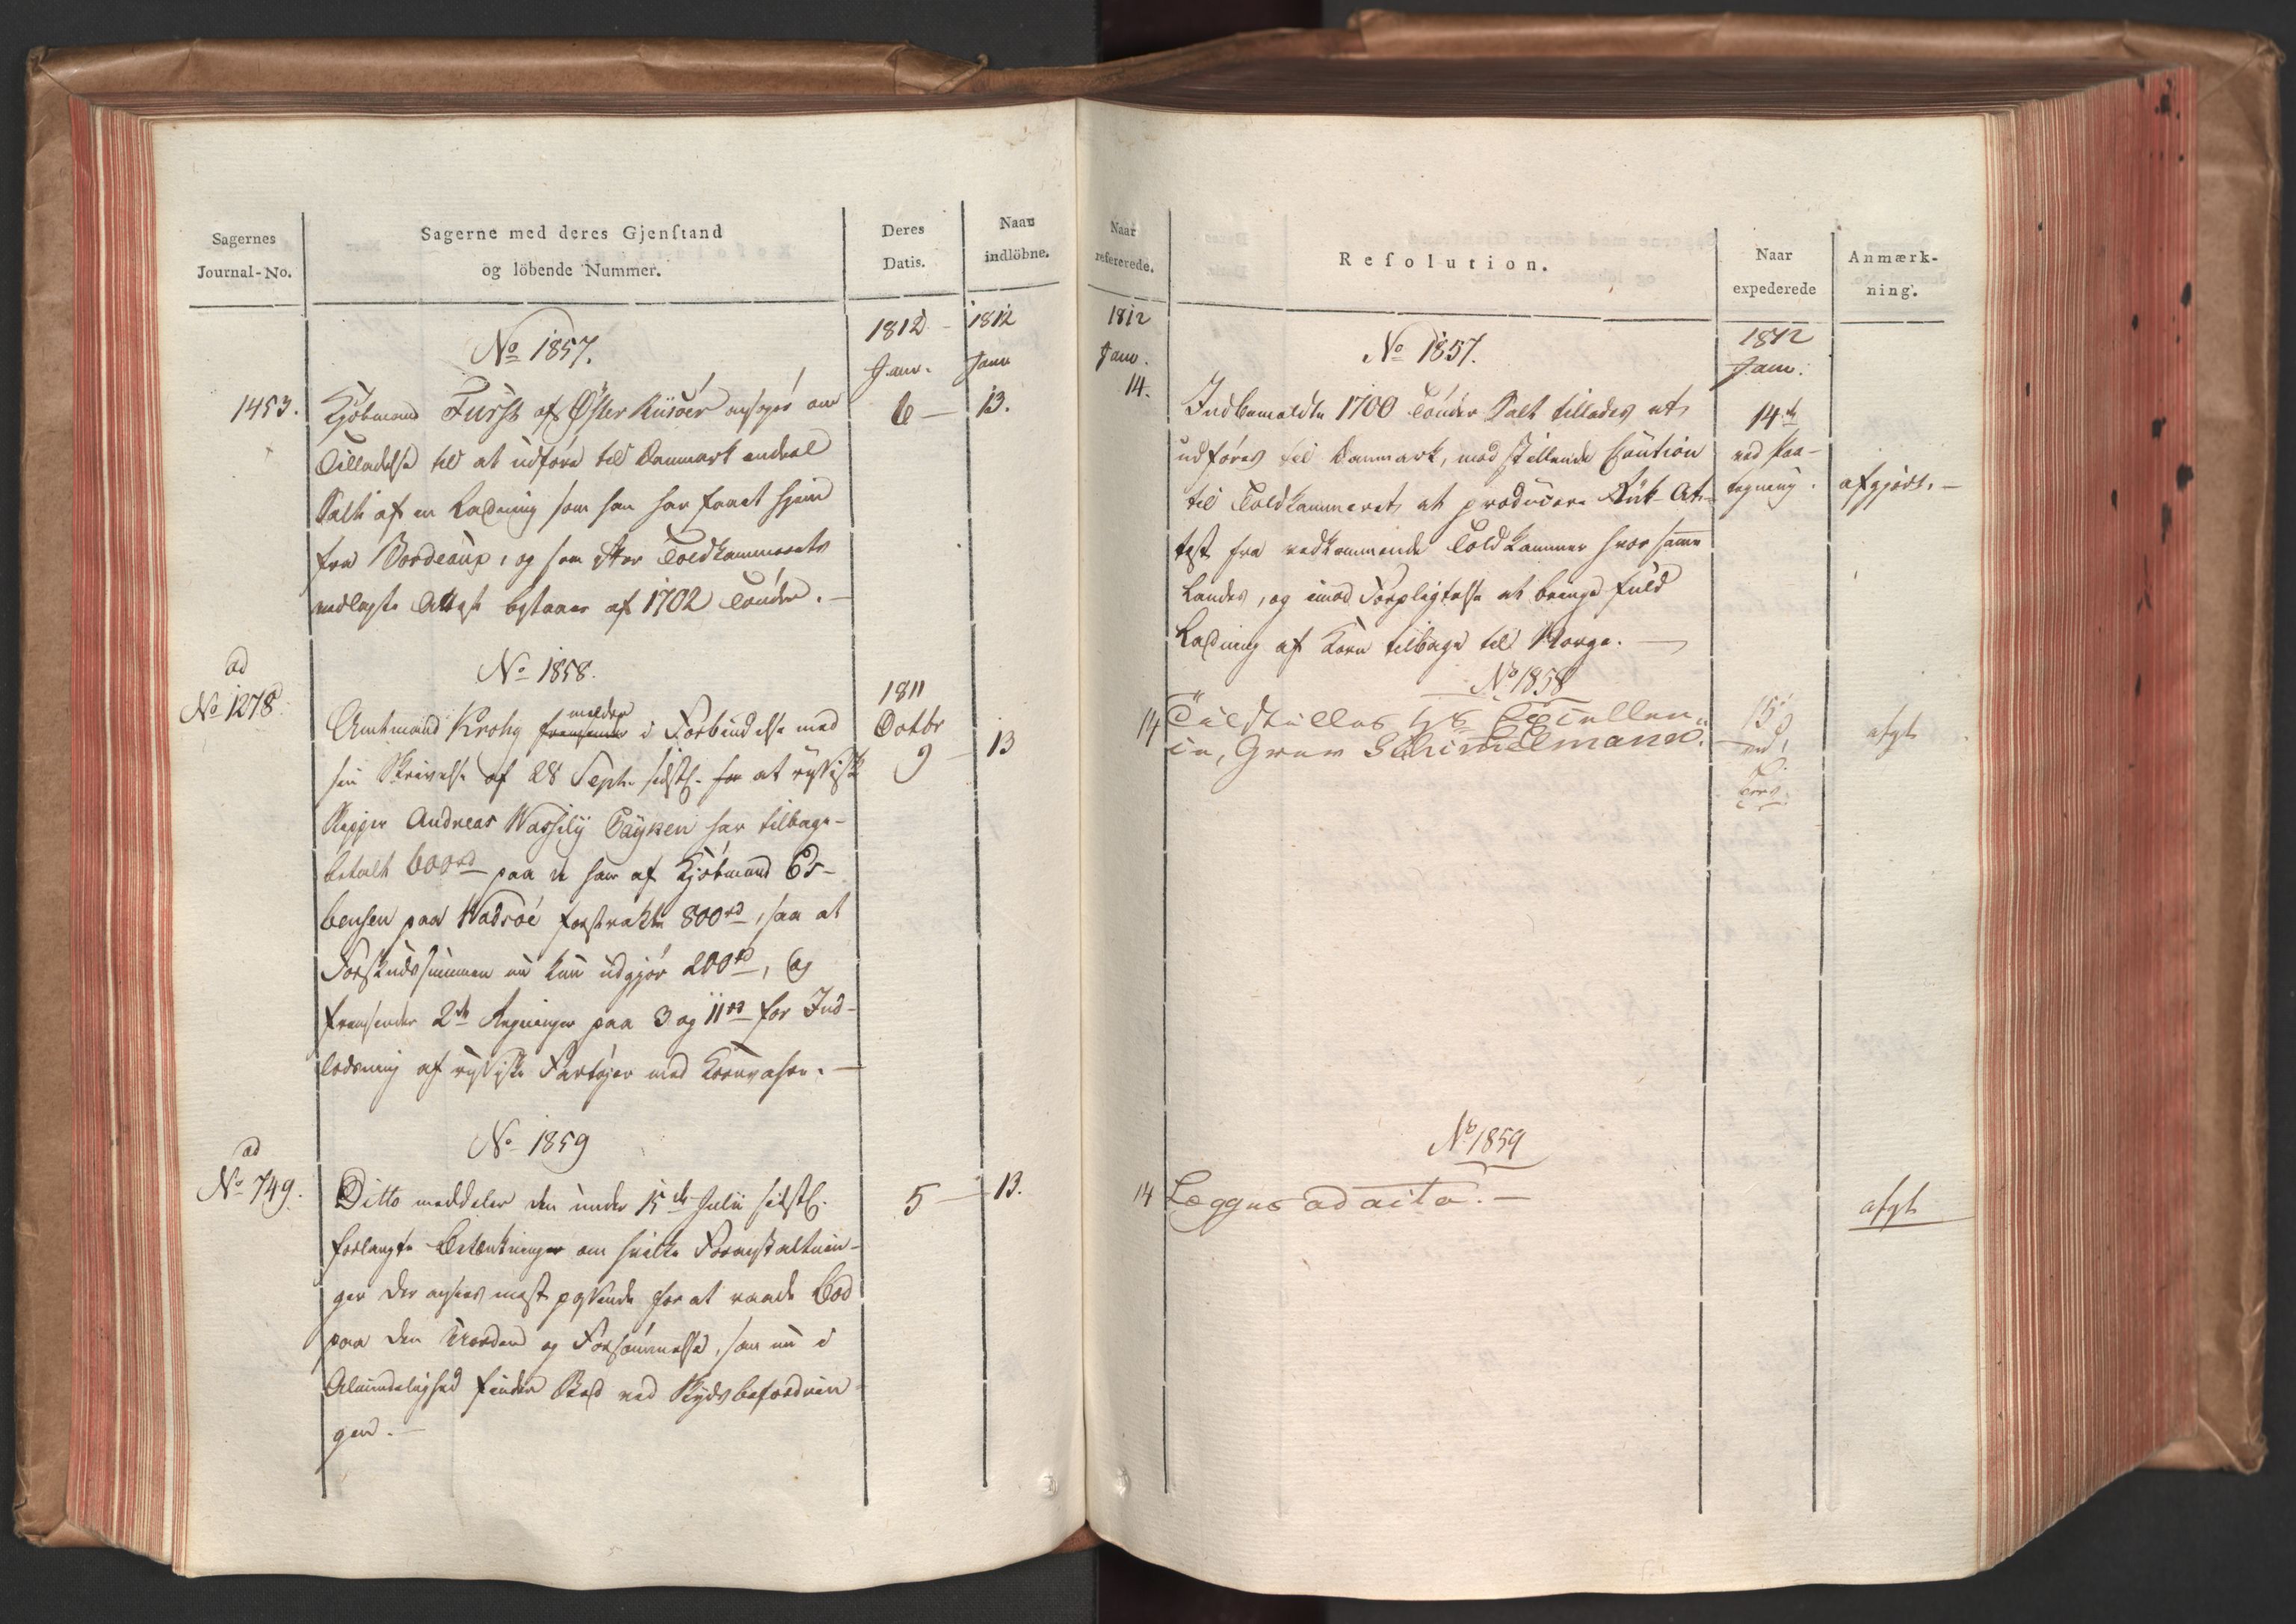 Sagernes
Journal-No.
Sagerne med deres Gjenſtand
og löbende Nummer.
Deres
Datis.
Naar
indlöbne.
1812
Janr.
1812
Janr
No 1857.
1453.
Kjöbmand Fürst af Öster Riisöer ansöger om
6 — 13.
Tilladelse til at udföre til Danmark endeel
Salt af en Ladning som han har faaet hjem
fra Bordeaux, og som efter Toldkammerets
vedlagte Attest bestaaer af 1702 Tönder. —
ad
No 1278.
No 1858.
1811
Octbr
9 — 13
melder
Amtmand Krohg fremsender i Forbindelse med
sin Skrivelse af 28 Septr. sidstl. at russisk
Skipper Andreas Wassily Payken har tilbage-
betalt 600 rd paa de ham af Kjöbmand Es-
bensen paa Wadsöe forstrakte 800 rd, saa at
Forskudssummen nu kun udgjör 200 rd, og
fremsender 2de Regninger paa 3 og 11 rd for Ind-
lodsning af russiske Fartöjer med Kornvahre. —
ad
No 749.
No 1859
Ditto meddeler den under 15de Julii sidstl.
5 — 13.
forlangte Betænkninger om hvilke Foranstaltnin-
ger der ansees mest passende for at raade Bod
paa den Uorden og Forsömmelse, som nu i
Almindelighed finder Sted ved Skydsbefordrin-
gen. —
Naar
refererede.
Reſolution.
Naar
expederede
Anmærk-
ning.
1812
Janr.
14.
No 1857.
1812
Janr.
Indbemeldte 1700 Tönder Salt tillades at
14de
udföres til Danmark, mod stillende Caution
ved Paa-
til Toldkammeret at producere Rück-At-
tegning.
afgjort. —
test fra vedkommende Toldkammer hvor samme
Landes, og imod Forpligtelse at bringe fuld
Ladning af Korn tilbage til Norge. —
No 1858
14
Tilstilles Hs Excellen-
ce, Grev Schimmelmann.
15
ved
afgt
No 1859
14
Lægges ad acta. —
afgt